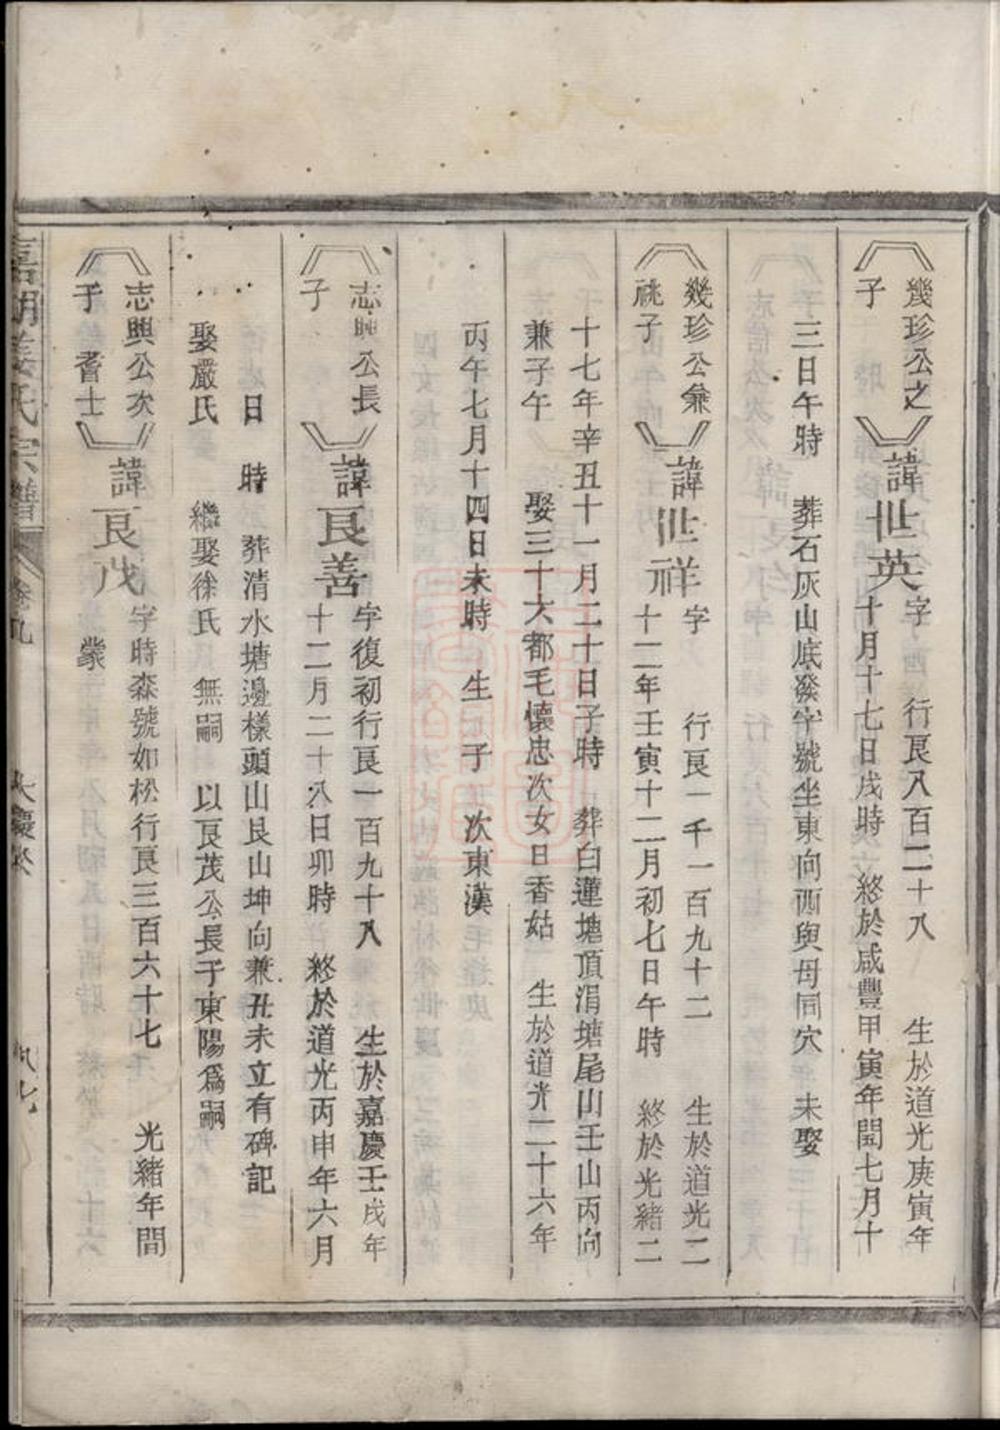 幾珍公之
子
諱世英
字　行良八百二十八　生於道光庚寅年
十月十七日戌時　終於咸豐甲寅年閏七月十
三日午時　葬石灰山底發字號坐東向西與母同穴　未娶
幾珍公兼
祧子
諱世祥
字　行良一千一百九十二　生於道光二
十二年壬寅十二月初七日午時　終於光緒二
十七年辛丑十一月二十日子時　葬白蓮塘頂涓塘尾山壬山丙向
兼子午　娶三十六都毛懷忠次女日香姑　生於道光二十六年
丙午七月十四日未時　生一子　次東漢
志興公長
子
諱良善
字復初行良一百九十八　生於嘉慶壬戌年
十二月二十八日卯時　終於道光丙申年六月
日　時　葬清水塘邊樣頭山艮山坤向兼丑未立有碑記
娶嚴氏　繼娶徐氏　無嗣　以良茂公長子東陽爲嗣
志興公次
子　耆士
諱良茂
字時森號如松行良三百六十七　光緒年間
蒙
姜氏宗譜
卷九
大慶公
八七